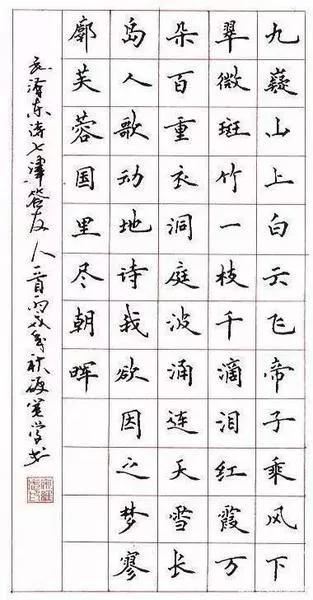 九嶷山上白云飞帝子乘风下
翠微斑竹一枝千滴泪红霞万
朵百重衣洞庭波涌连天雪长
岛人歌动地诗我欲因之梦寥
廓芙蓉国里尽朝晖
毛泽东诗七律答友人一首丙戌年秋海宽学书